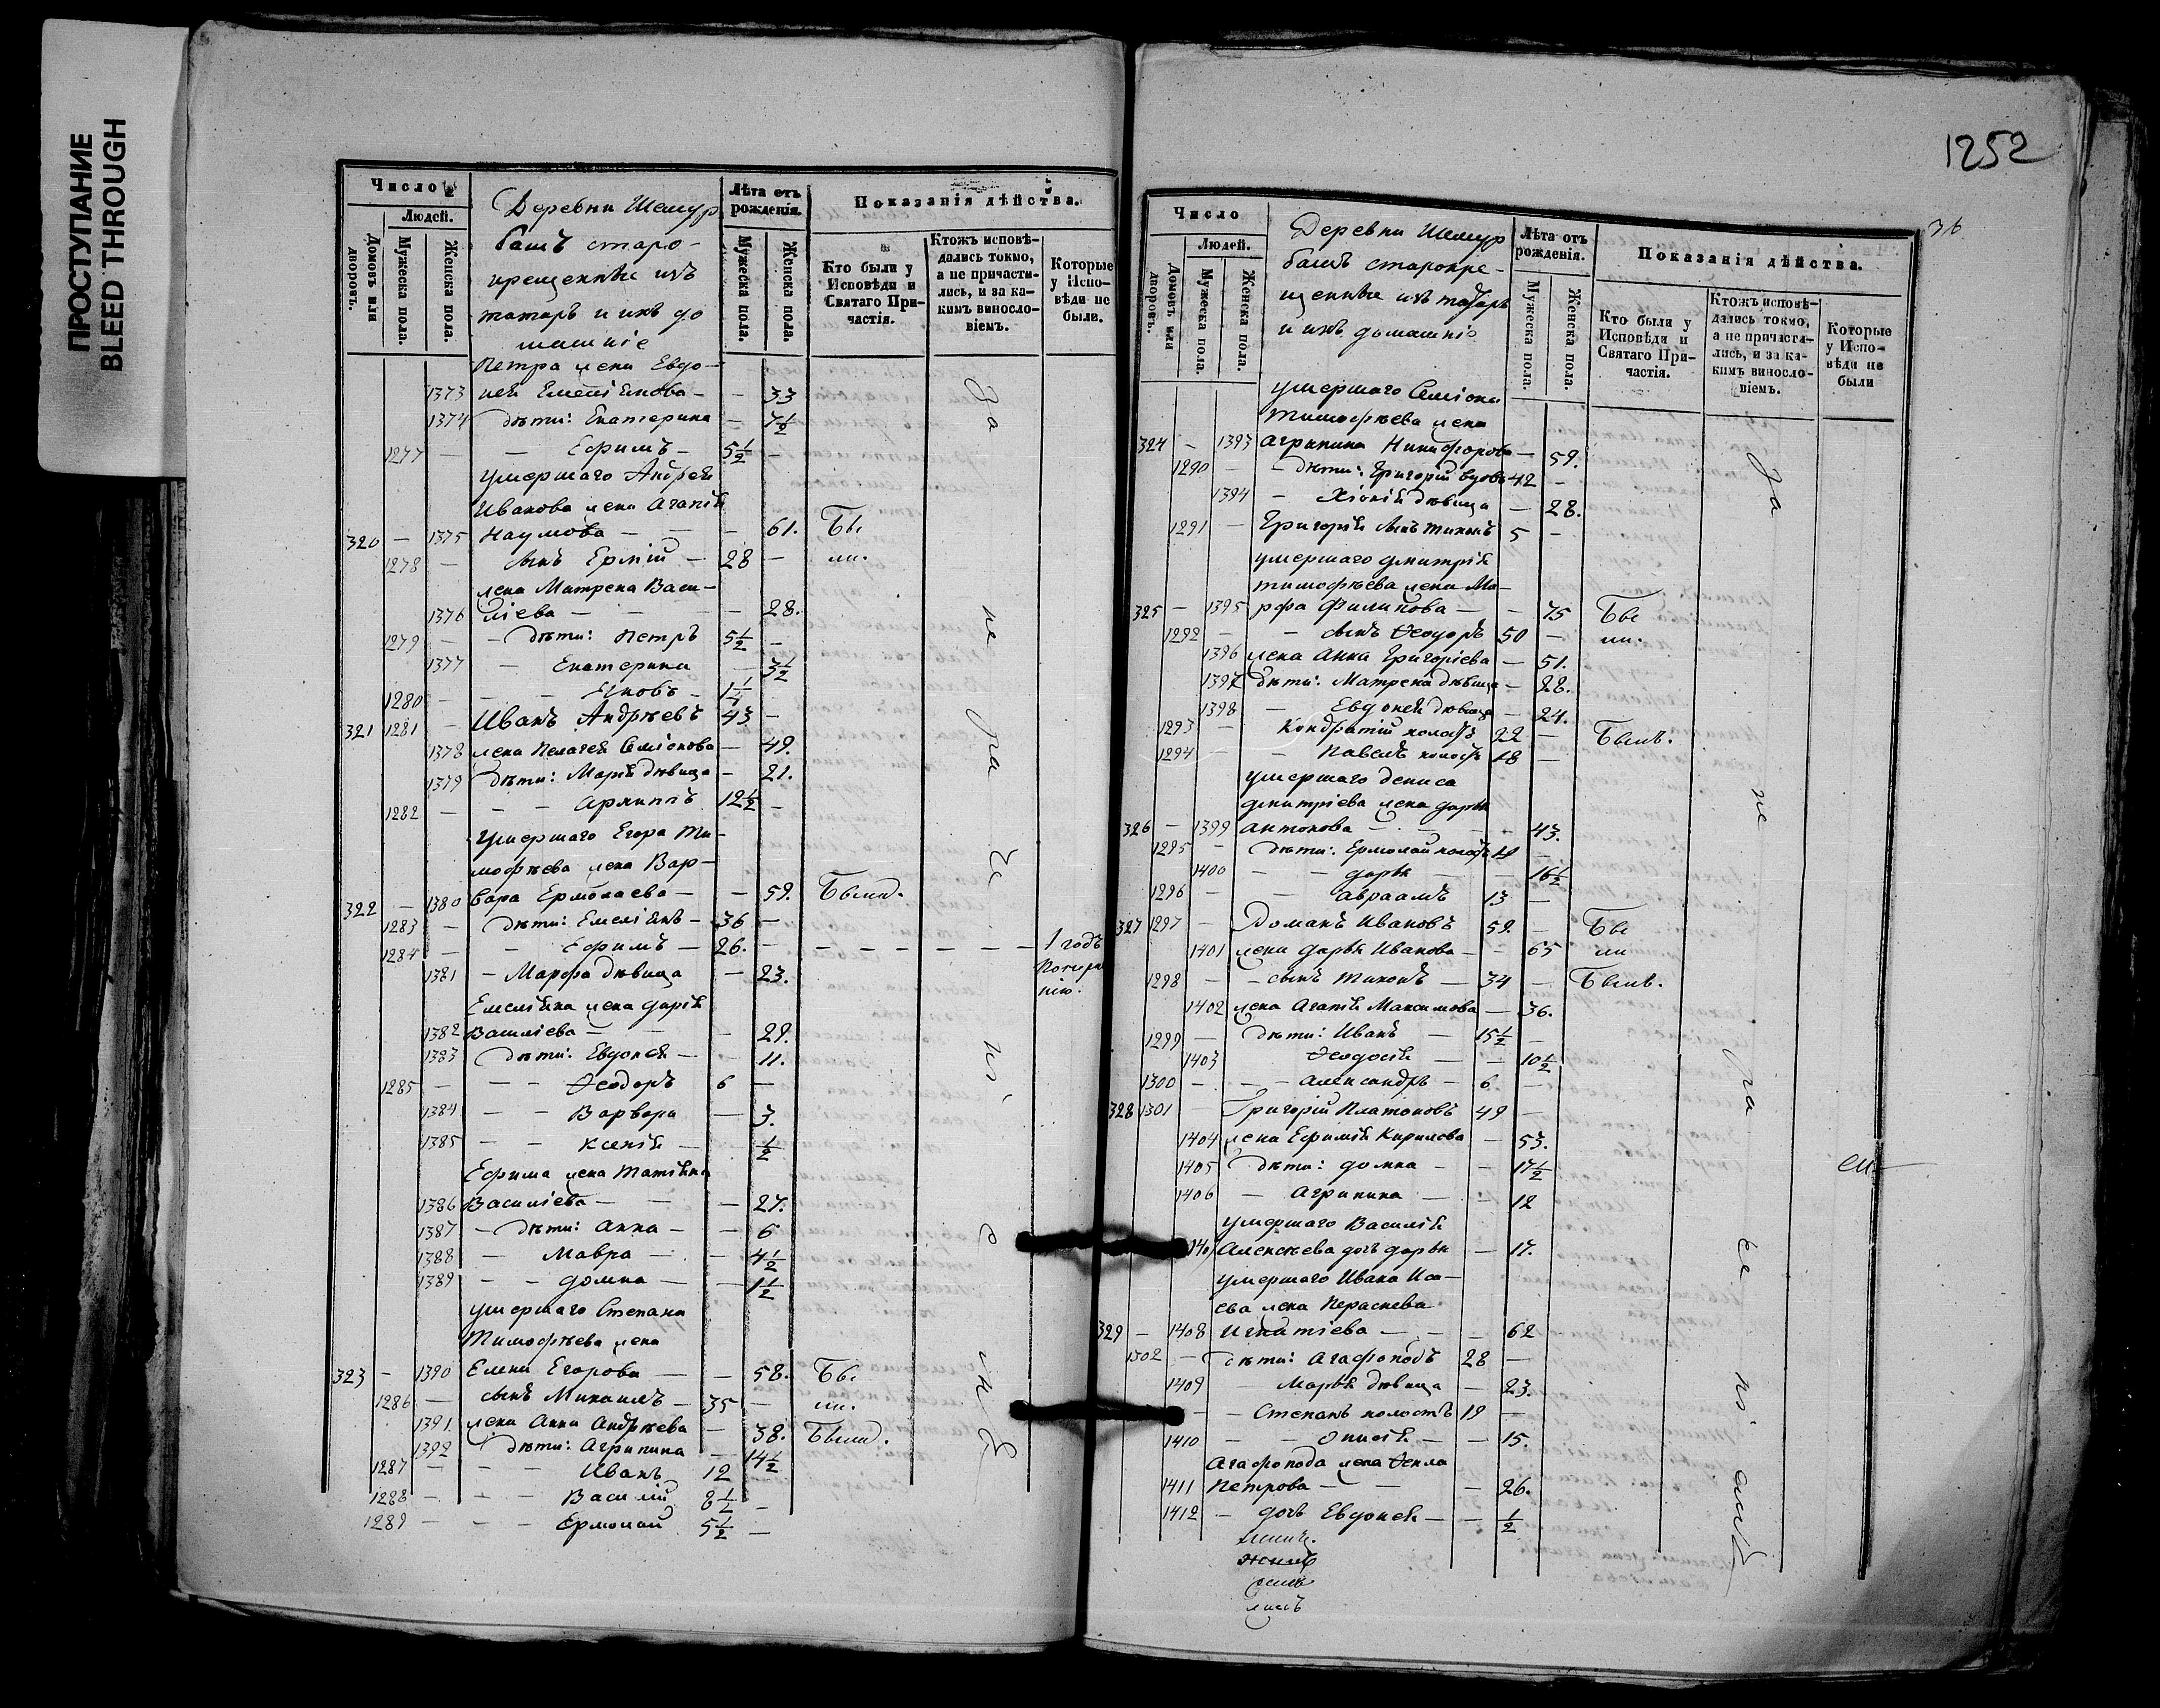 ПРОСТУПАНИЕ
BLEED THROUGH
Число
Людей.
Домовъ или дворовъ.
Мужеска пола.
Женска пола.
Деревни Шемур
башъ старо-
крещенные изъ
татаръ и ихъ до
машніе
Лѣта отъ рожденія.
Мужеска пола.
Женска пола.
Показанія дѣйства.
Кто были у Исповѣди и Святаго Причастія.
Ктожъ исповѣдались токмо, а не причастились, и за какимъ винословіемъ.
Которые у Исповѣди не были.
Петра жена Евдо-
1373 кея Емелiянова - - 33
1374 дѣти: Екатерина - 7½
1277 - - Ефимъ - 5½ -
умершаго Андрея
Иванова жена Агапія
320 - 1375 Наумова - - - 61. Бы
1278 - сынъ Ермій - 28 - ли.
жена Матрена Васи-
1376 ліева - - - 28.
1279 - - дѣти: Петръ 5½ -
1377 - Екатерина - 3½
1280 - - - Яковъ - 1¼
321 1281 - Иванъ Андрѣевъ 43 -
1378 жена Пелагея Семіонова - 49.
1379 дѣти: Марія дѣвица - 21.
1282 - - - Архипъ 12½ -
умершаго Егора Ти-
мофѣева жена Вар-
322 - 1380 вара Ермолаева - - 59. Была.
1283 - дѣти: Емеліянъ - 36 -
1284 - - Ефимъ - 26. - - - - - - - 1 годъ
1381 - Марфа дѣвица - 23.
нію.
Емеліяна жена Дарія
1382 Василіева - - - 29.
1383 дѣти: Евдокея - - 11.
1285 - - - Ѳеодоръ 6 -
1384 - - Варвара - 3.
1385 - - Ксенія - ½
Ефима жена Татіяна
1386 Василіева - - - 27.
1387 - дѣти: Анна - - 6
1388 - Мавра - - 4½
1389 - - Домна - - 1½
умершаго Степана
Тимофѣева жена
323 - 1390 Елена Егорова - - 58. Бы
1286 - сынъ Михаилъ - 35 - ли.
1391. жена Анна Андрѣева - 38. Была.
1392 дѣти: Агрипина - 14½
1287 - - - Иванъ 12
1288 - - - Василій 8½ -
1289 - - - Ермолай 5½ -
За не ра че ні е мъ
1252
36
Число
Людей.
Домовъ или дворовъ.
Мужеска пола.
Женска пола.
Деревни Шемур
башъ старокре-
щенные изъ татаръ
и ихъ домашніе
Лѣта отъ рожденія.
Мужеска пола.
Женска пола.
Показанія дѣйства.
Кто были у Исповѣди и Святаго Причастія.
Ктожъ исповѣдались токмо, а не причастились, и за какимъ винословіемъ.
Которые у Исповѣди не были
умершаго Семіона
Тимофѣева жена
324 - 1393 Агрипина Никифорова - 59.
1290 - - дѣти: Григорій вдовъ 42 -
1394 - Хіонія дѣвица - 28.
1291 - Григорія сынъ Тихонъ 5 -
умершаго Дмитрія
Тимофѣева жена Ма-
325 - 1395 рфа Филипова - - 75 Бы
1292 - - сынъ Ѳеодоръ 50 - ли.
1396 жена Анна Григоріева - 51.
1397 дѣти: Матрена дѣвица - 28.
1398 - Евдокея дѣвица - 24.
1293 - Кондратій холостъ 22 - Былъ.
1294 - - Павелъ холостъ 18 -
умершаго Дениса
Дмитріева жена Дарья
326 - 1399 Антонова - - - 43.
1295 - дѣти: Ермолай холостъ 19 -
1400 - - Дарья - - 16½
1296 - - Авраамъ 13 -
327 1297 - Романъ Ивановъ 59. - Бы
1401 жена Дарья Иванова - - 65 ли
1298 - - сынъ Тихонъ - 34 - Былъ.
1402 жена Агапія Максимова - 36.
1299 - дѣти: Иванъ - 15½ -
1403 Ѳеодосія - - 10½
1300 - - - Александръ - 6 -
328 1301 - Григорій Платоновъ 49 -
1404 жена Ефимія Кирилова - 53.
1405 дѣти: Домна - - 17½
1406 - Агрипина - - 12
умершаго Василія
1407 Алексѣева дочь Дарья - 17.
умершаго Ивана Иса-
ева жена Пераскева
329 - 1408 Игнатіева - - - 62
1302 - дѣти: Агафоподъ 28 -
1409 - Марья дѣвица - 23.
- - Степанъ холостъ 19 -
1410 - - Анисія - - 15.
Агафопода жена Ѳекла
1411 Петрова - - - 26.
1412 - дочь Евдокея - - ½
За не ра че ні емъ